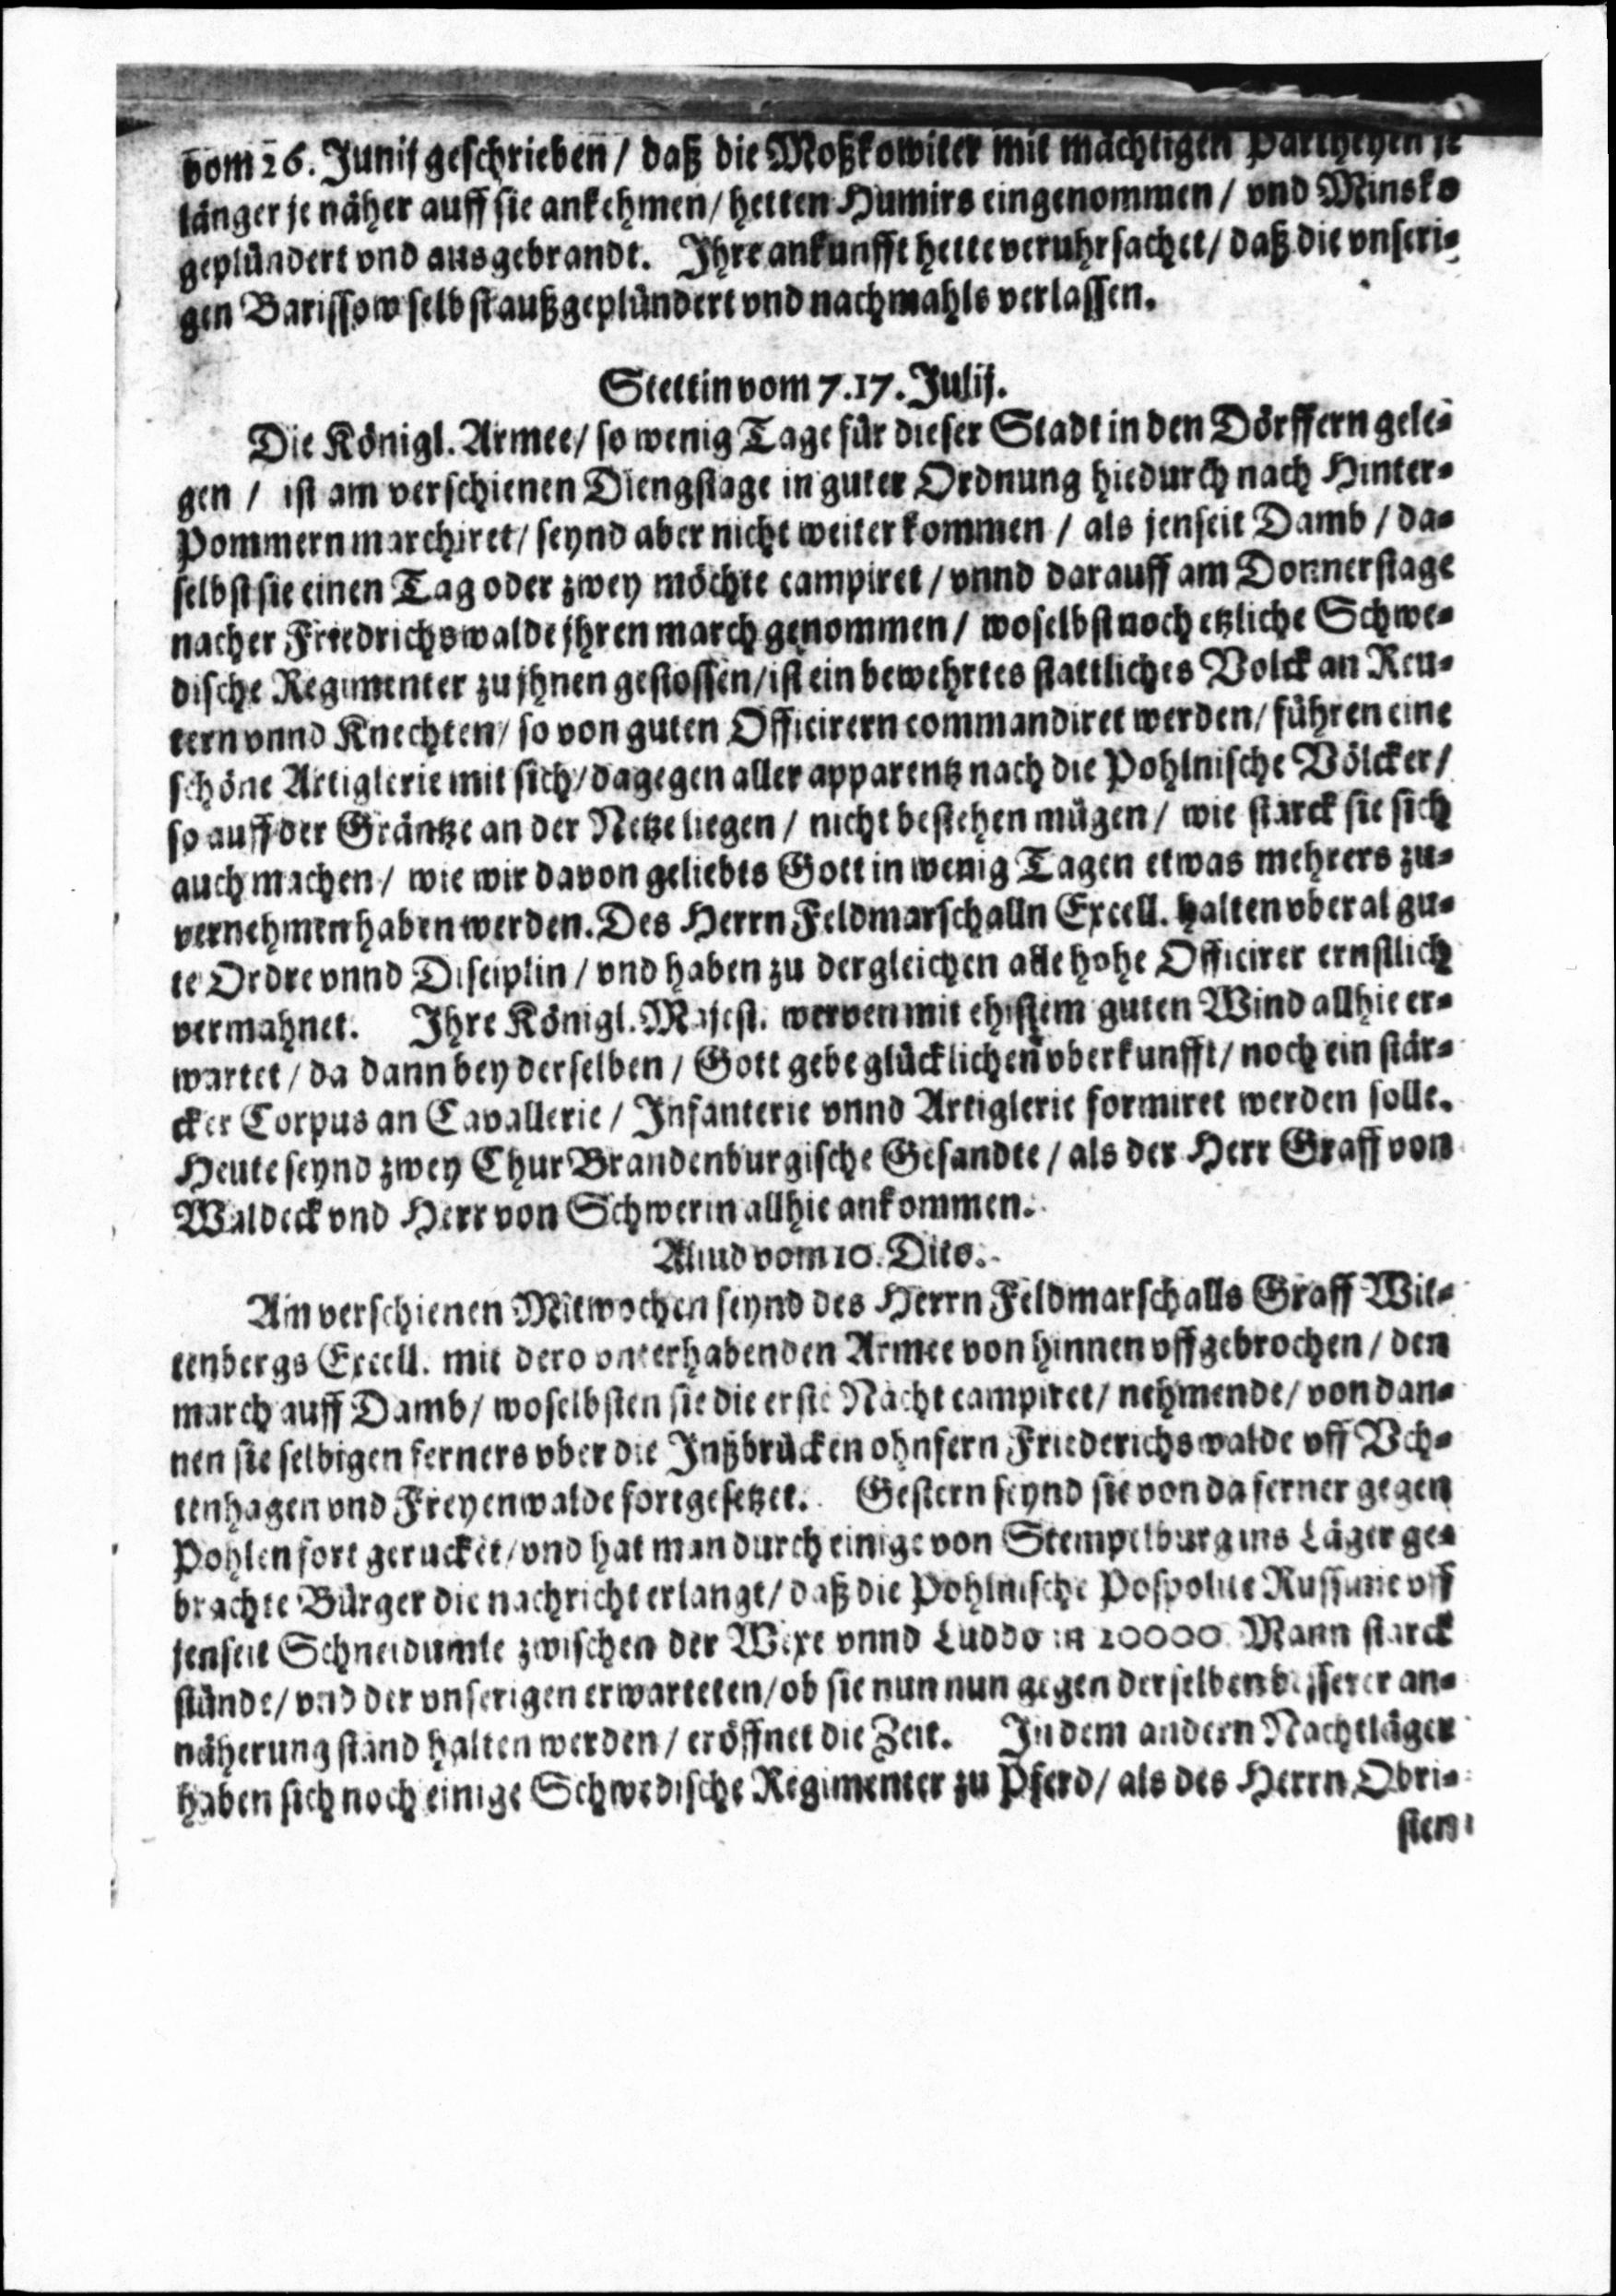 vom 26. Junij geschrieben / daß die Moßkowiter mit mächtigen Partheyen je
länger je näher auff sie ankehmen / hetten Humirs eingenommen / vnd Minsko
geplündert vnd ausgebrandt. Ihre ankunfft hette veruhrsachet / daß die vnseri-
gen Barissow selbst außgeplündert vnd nachmahls verlassen.
Stettin vom 7.17. Julij.
Die Königl. Armee / so wenig Tage für dieser Stadt in den Dörffern gele-
gen / ist am verschienen Diengstage in guter Ordnung hiedurch nach Hinter-
Pommern marchiret / seynd aber nicht weiter kommen / als jenseit Damb / da-
selbst sie einen Tag oder zwey möchte campiret / vnnd darauff am Donnerstage
nacher Friedrichswalde jhren march genommen / woselbst noch etzliche Schwe-
dische Regimenter zu jhnen gestossen / ist ein bewehrtes stattliches Volck an Reu-
tern vnnd Knechten / so von guten Officirern commandiret werden / führen eine
schöne Artiglerie mit sich / dagegen aller apparentz nach die Pohlnische Völcker /
so auff der Gräntze an der Netze liegen / nicht bestehen mügen / wie starck sie sich
auch machen / wie wir davon geliebts Gott in wenig Tagen etwas mehrers zu-
vernehmen haben werden. Des Herrn Feldmarschalln Excell. halten vberal gu-
te Ordre vnnd Disciplin / vnd haben zu dergleichen alle hohe Officirer ernstlich
vermahnet. Ihre Königl. Majest. werden mit ehistem guten Wind allhie er-
wartet / da dann bey derselben / Gott gebe glücklichen vberkunfft / noch ein stär-
cker Corpus an Cavallerie / Infanterie vnnd Artiglerie formiret werden solle.
Heute seynd zwey Chur Brandenburgische Gesandte / als der Herr Graff von
Waldeck vnd Herr von Schwerin allhie ankommen.
Aliud vom 10. Dito.
Am verschienen Mitwochen seynd des Herrn Feldmarschalls Graff Wit-
tenbergs Excell. mit dero vnterhabenden Armee von hinnen vffgebrochen / den
march auff Damb / woselbsten sie die erste Nacht campiret / nehmende / von dan-
nen sie selbigen ferners vber die Inßbrücken ohnfern Friederichswalde vff Vch-
tenhagen vnd Freyenwalde fortgesetzet. Gestern seynd sie von da ferner gegen
Pohlen fort gerucket / vnd hat man durch einige von Stempelburg ins Läger ge-
brachte Bürger die nachricht erlangt / daß die Pohlnische Pospolite Russanie vff
jenseit Schneidumle zwischen der Wixe vnnd Luddo in 10000 Mann starck
stünde / vnd der vnserigen erwarteten / ob sie nun nun gegen derselben besserer an-
näherung stand halten werden / eröffnet die Zeit. In dem andern Nachtläger
haben sich noch einige Schwedische Regimenter zu Pferd / als des Herrn Obri-
sten